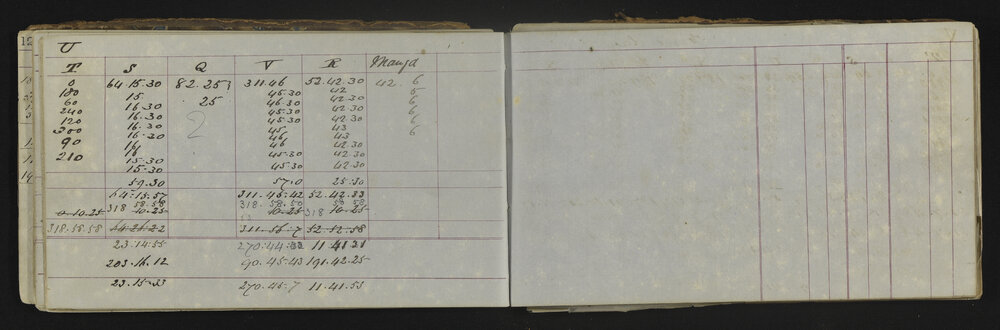 U
T S Q V R Manga
0 64.15.30 82.25 311.46 52.42.30 42. 6
180 15 25 45.30 42 5
60 16.30 46.30 42.30 6
240 16.30 45.30 42.30 6
120 16.30 45.30 42.30 6
300 16.30 45 43 6
90 46 43
210 16 46 42.30
15.30 45.30 42.30
15.30 45.30 42.30
2
59.30 57.0 25.30
64.15.57 311.45.42 52.42.33
318 58.58 318.58.50 58.58
0.10.25 10.25 10.25 318 10.25
318.58.58 311.56.7 52.52.58
23.14.55 270.44. 11.41.31
203.16.12 90.45.43 191.42.25
23.15.33 270.45.7 11.41.53